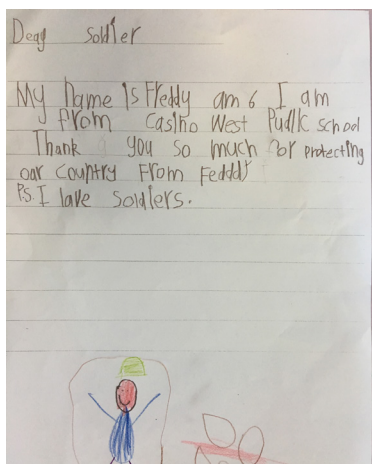 Dear soldier
My name is Freddy am 6 I am
from Casino West Public school
Thank you so much for protecting
our country From Feddd
P.S. I love soldiers.